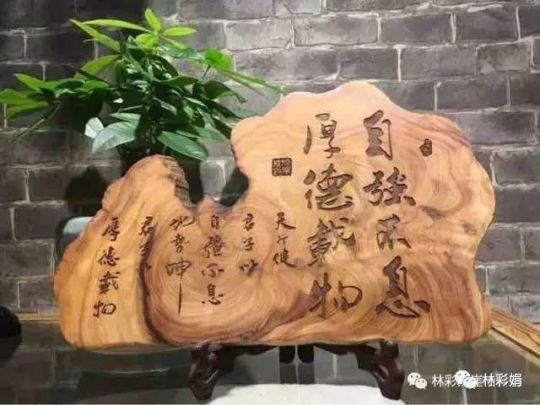 自強不息
厚德載物
天行健
君子以
自強不息
地勢坤
君子以
厚德載物
林彩
林彩娟